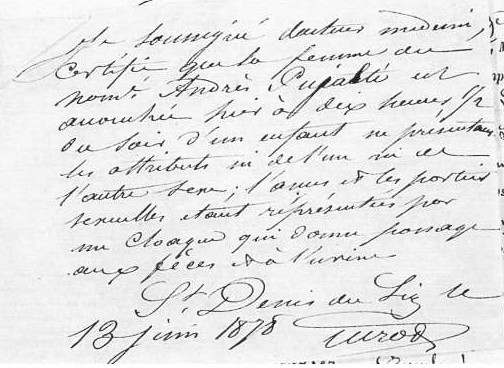 Je soussigné docteur medecin,
certifie que la femme du
nommé Andrès est
accouchée hier à deux heures 1/2
du soir d'un enfant ne présentant
les attributs ni de l'un ni de
l'autre sexe ; l'anus et les parties
sexuelles étant représentées par
un cloaque qui donne passage
aux fèces et à l'urine
St Denis du Sig le
13 juin 1878